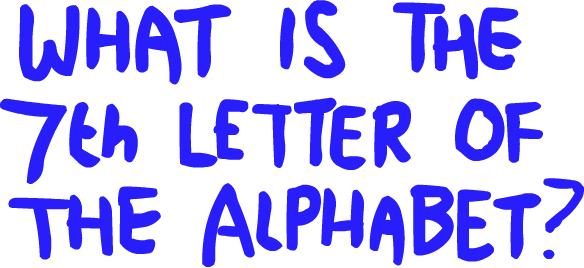 WHAT IS THE
7th LETTER OF
THE ALPHABET?